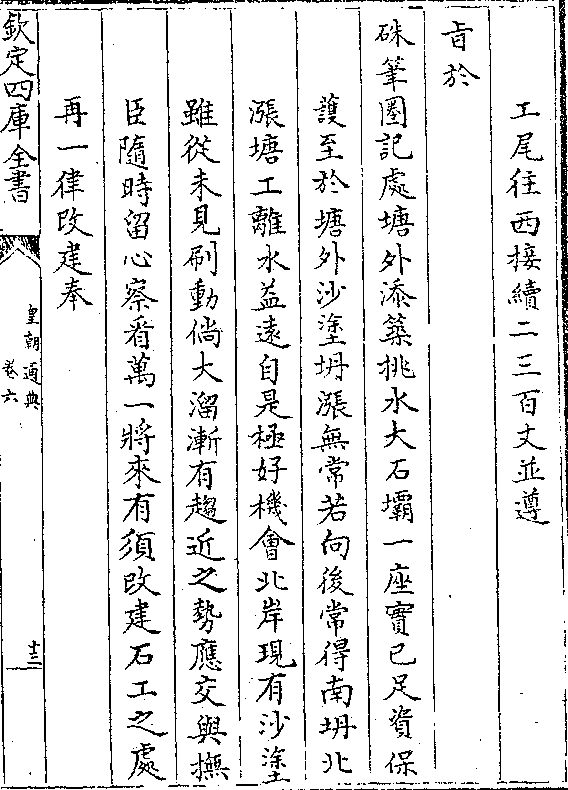 工尾往西接續二三百丈並遵
旨於
硃筆圈記處塘外添築挑水大石壩一座實已足資保
護至於塘外沙塗坍漲無常若向後常得南坍北
漲塘工離水益遠自是極好機會北岸現有沙塗
雖從未見刷動倘大溜漸有趨近之勢應交與撫
臣隨時留心察看萬一將來有須改建石工之處
再一律改建奉
欽定四庫全書
皇朝通典
卷六
十三